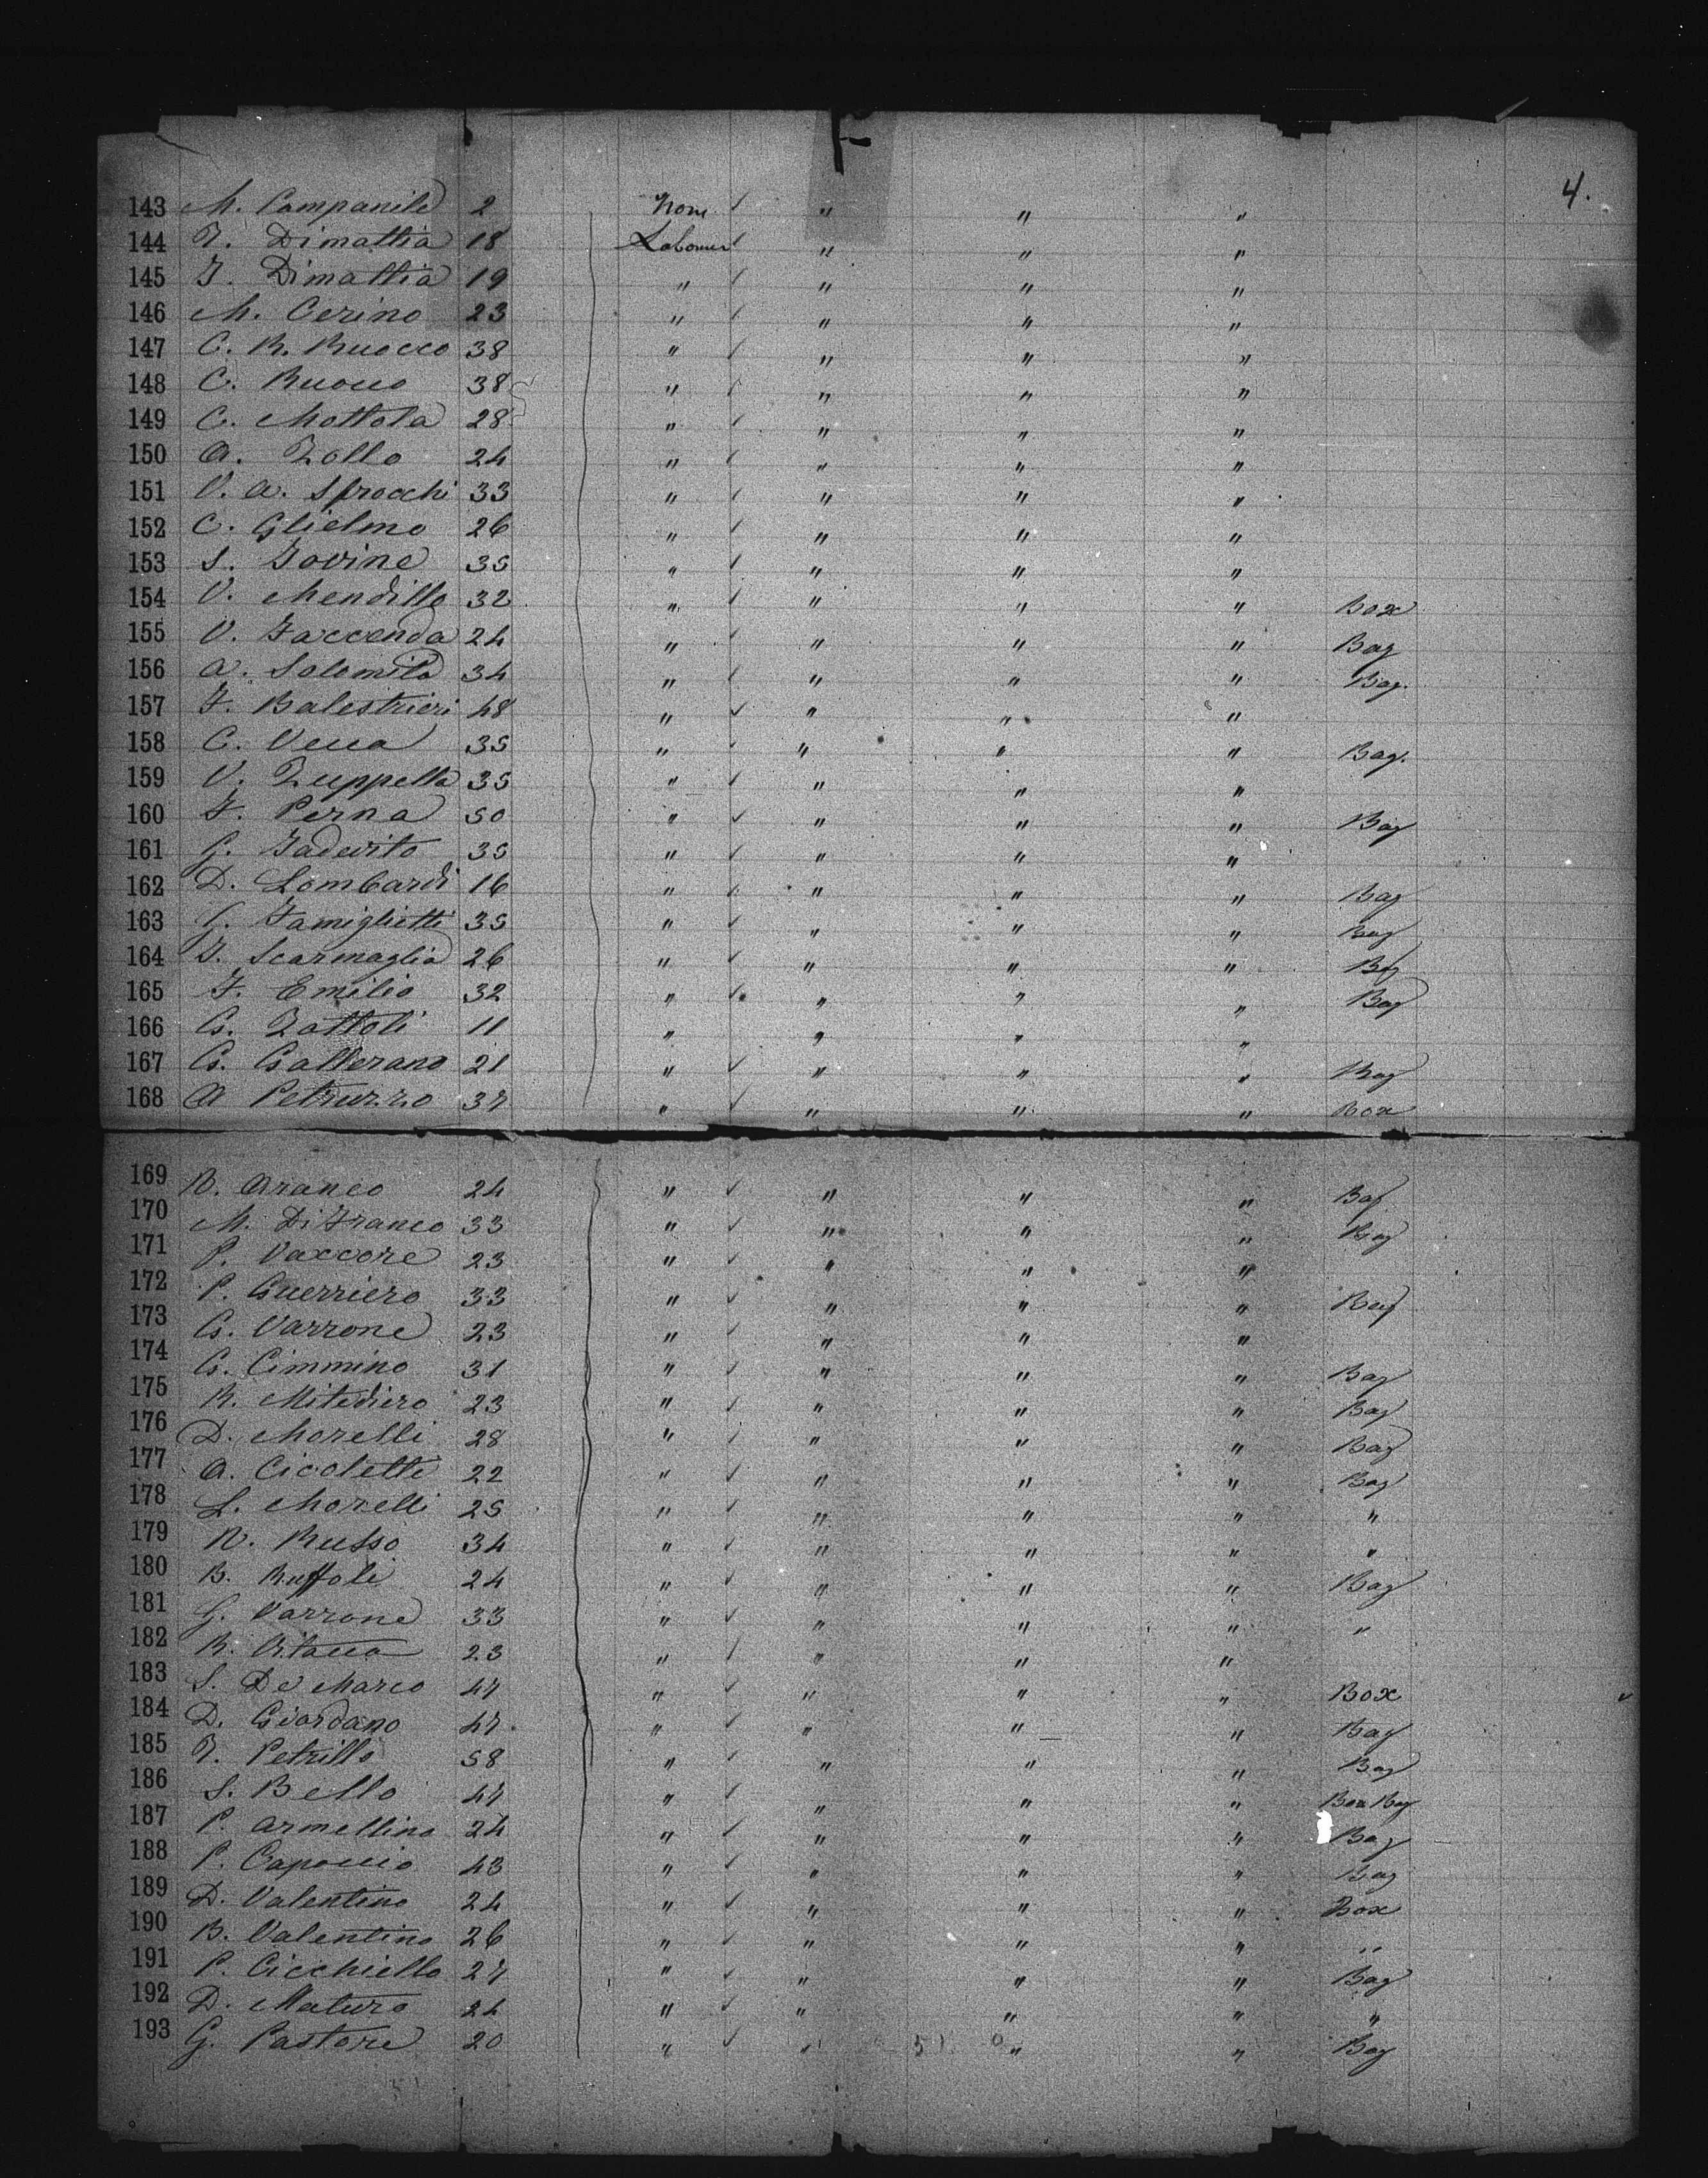 4.
143 M. Campanile 2 None " " "
144 T. Dimattia 18 Labourer " " "
145 F. Dimattia 19 " " " "
146 M. Cerino 23 " " " "
147 C. R. Ruocco 38 " " " "
148 C. Ruocco 38 " " " "
149 C. Mottola 28 " " " "
150 A. Zollo 24 " " " "
151 V. A. Sprocchi 33 " " " "
152 C. Glielmo 26 " " " "
153 S. Iovine 35 " " " "
154 V. Mendillo 32 " " " " Box
155 V. Faccenda 24 " " " " Bag
156 A. Solomita 34 " " " " Bag.
157 F. Balestrieri 48 " " " "
158 C. Vecca 35 " " " " Bag.
159 V. Zuppella 35 " " " "
160 F. Perna 50 " " " " Bag
161 G. Iadevito 35 " " " "
162 D. Lombardi 16 " " " " Bag
163 G. Famiglietti 35 " " " " Bag
164 F. Scarmaglia 26 " " " " Bag
165 F. Emilio 32 " " " " Bag
166 G. Zattoli 11 " " " "
167 G. Gallerano 21 " " " " Bag
168 A Petruzzo 37 " " " " Box
169 R. Aranco 24 " " " " Bag
170 M. DiFranco 33 " " " " Bag
171 P. Vaccore 23 " " " "
172 P. Guerriero 33 " " " " Bag
173 G. Varrone 23 " " " "
174 G. Cimmino 31 " " " " Bag
175 R. Mitidiero 23 " " " " Bag
176 D. Morelli 28 " " " " Bag
177 A. Cicoletti 22 " " " " Bag
178 L. Morelli 25 " " " " "
179 N. Russo 34 " " " " "
180 B. Ruffoli 24 " " " " Bag
181 G. Varrone 33 " " " " "
182 R. 23 " " " "
183 S. De Marco 47 " " " " Box
184 D. Giordano 47 " " " " Bag
185 T. Petrillo 58 " " " " Bag
186 S. Bello 47 " " " " Box Bag
187 P. Armellino 24 " " " " Bag
188 P. Capoccio 43 " " " " Bag
189 D. Valentino 24 " " " " Box
190 B. Valentino 26 " " " " "
191 P. Cicchiello 27 " " " " Bag
192 D. Maturo 24 " " " " "
193 G. Pastore 20 " " " " Bag